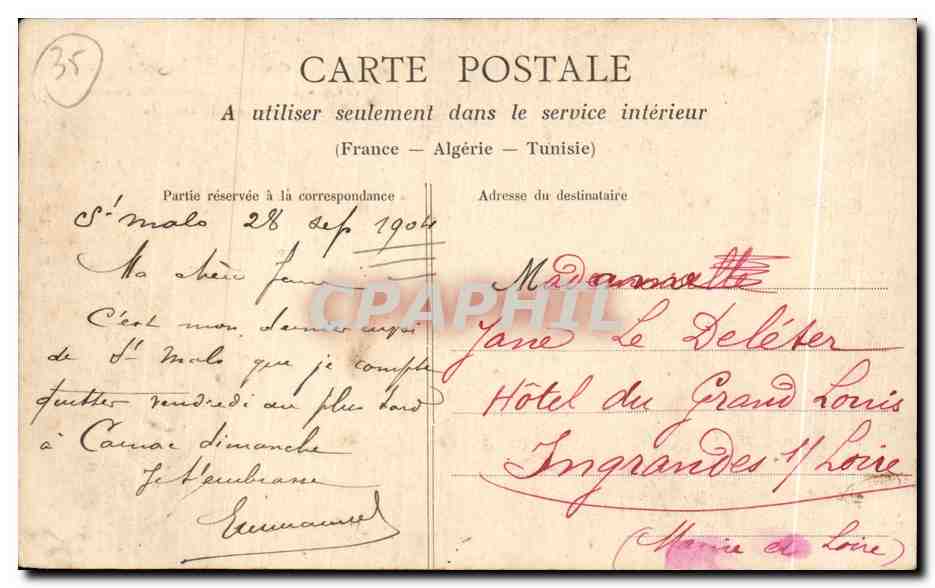 35
CARTE POSTALE
A utiliser seulement dans le service intérieur
(France — Algérie — Tunisie)
Partie réservée à la correspondance
St malo 28 sep 1904
Ma chère Jane
C'est mon dernier
de St Malo que je compte
quitter vendredi au plus tard
à Carnac dimanche
Je t'embrasse
Emmanuel
Adresse du destinataire
Madame
Jane Le Deléter
Hôtel du Grand Louis
Ingrandes s/ Loire
(Maine et Loire)
CPAPHIL